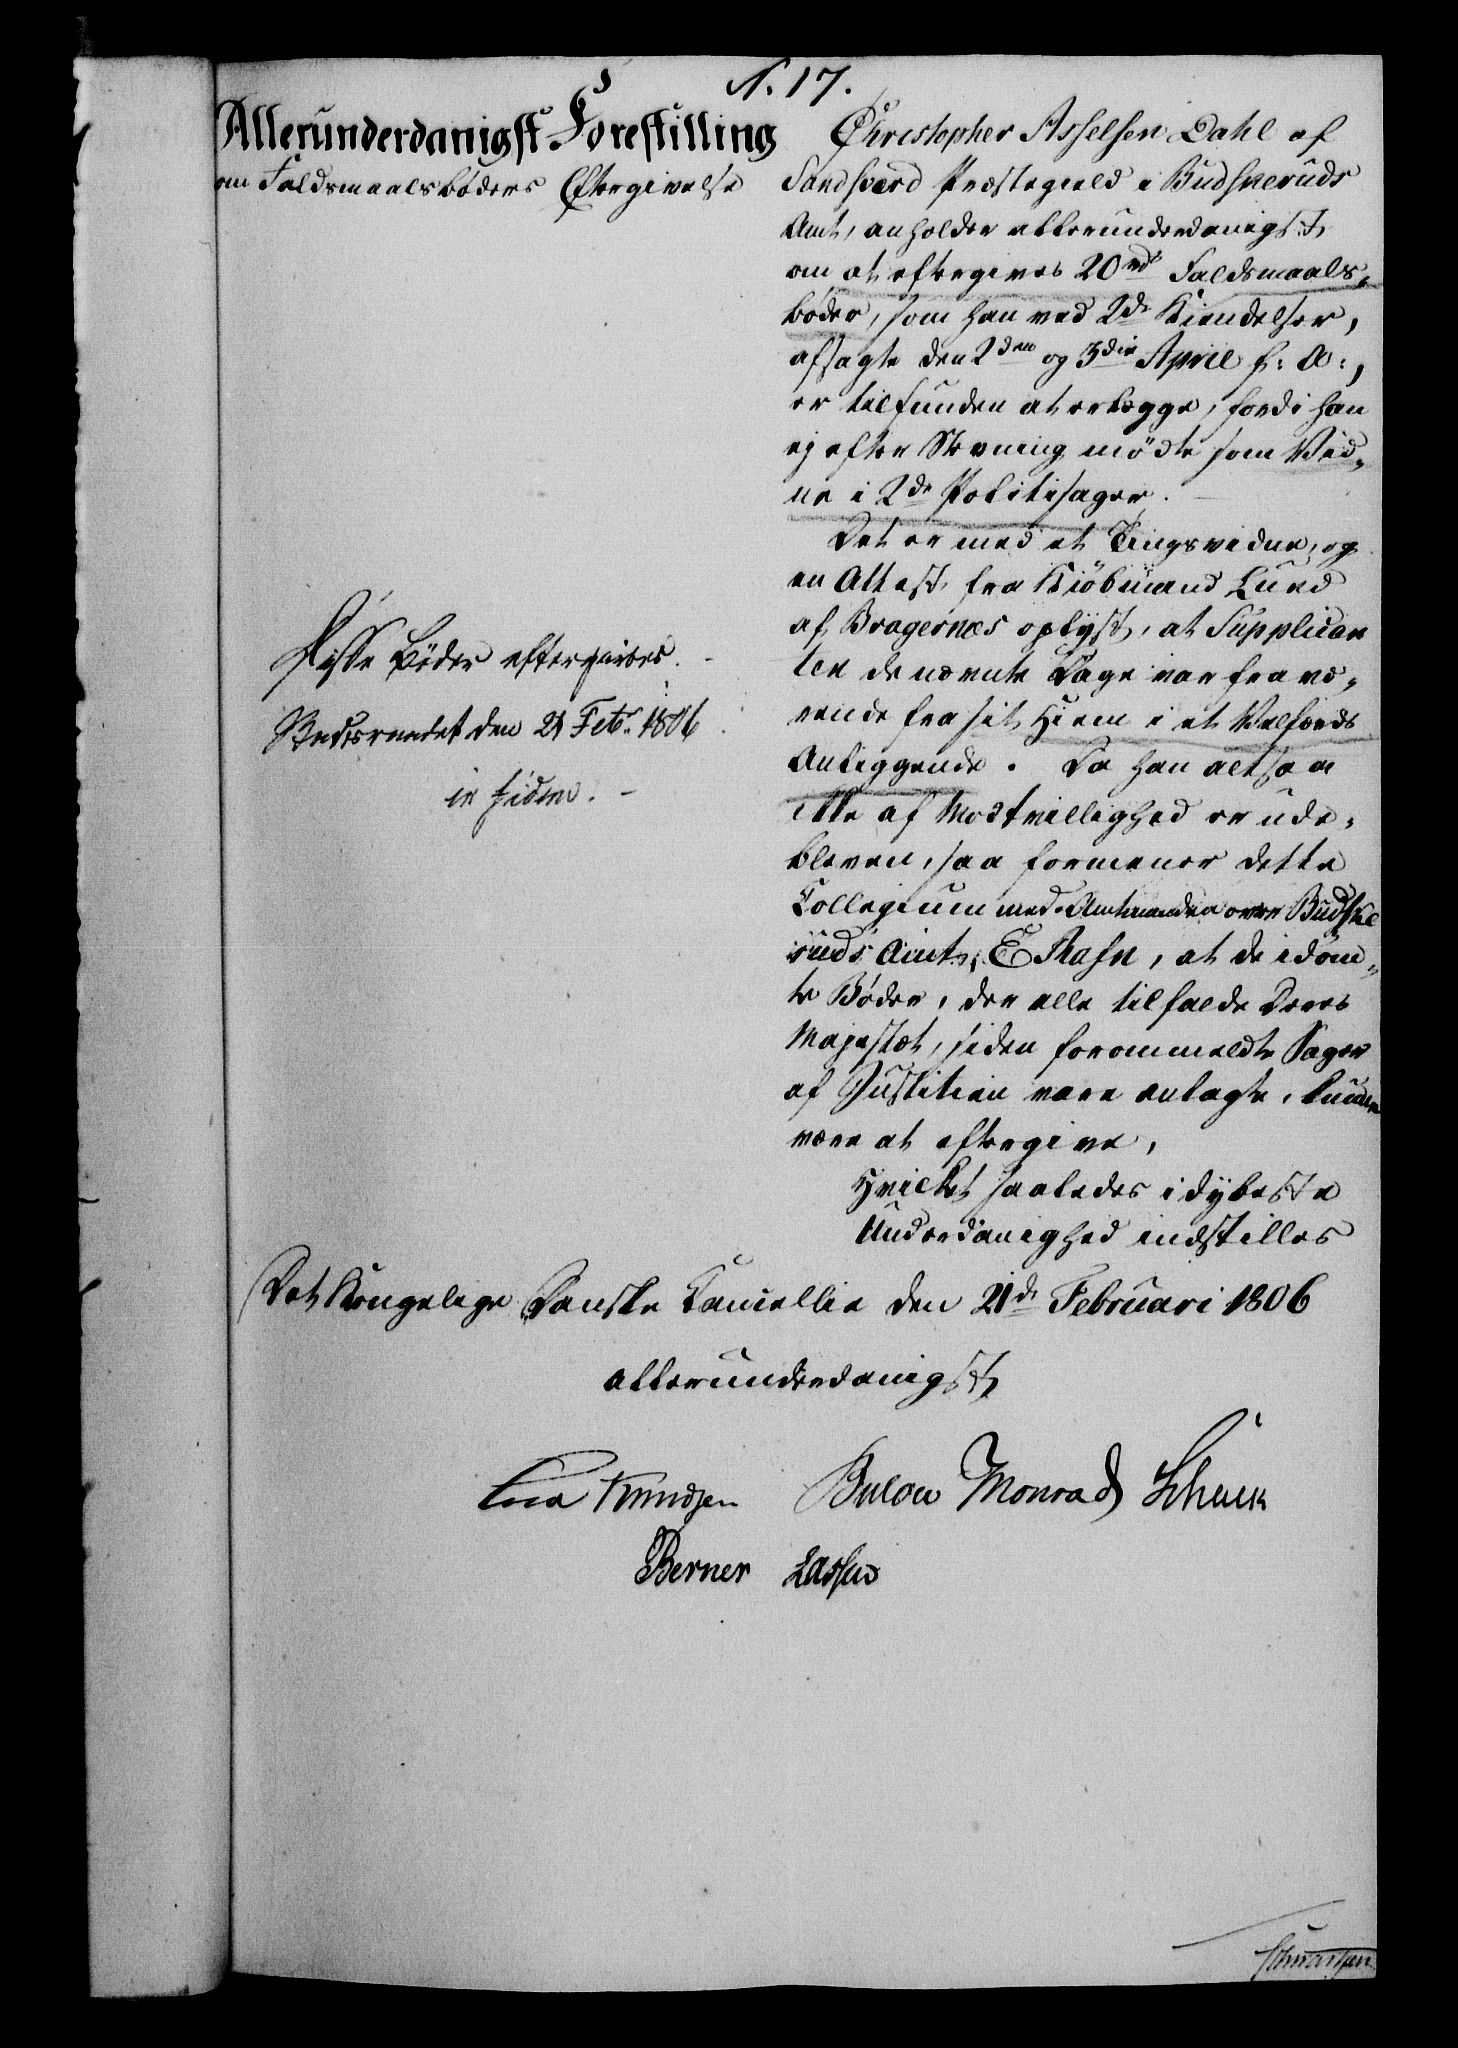 N. 17.
Allerunderdanigst Forestilling
om Faldsmaalsbøders Eftergivelse
Christopher Asselsen Dahl af
Sandsværd Præstegield i Budskeruds
Amt, anholder allerunderdanigst
om at eftergives 20 rd Faldsmaals-
bøder, som han ved 2de Kiendelser,
afsagte den 2den og 3die April f: A:,
er tilfunden at erlægge, fordi han
ej efter Stevning mødte som Vid-
ne i 2de Politisager.
Det er med et Tingsvidne, og
en Attest fra Kiöbmand Lund
af Bragernæs oplyst, at Supplican
ten de nævnte Dage var fravæ-
rende fra sit Hiem i et Velfærds
Anliggende. Da han altsaa
ikke af Modtvillighed er ude-
bleven, saa formener dette
Collegium med Amtmanden over Budske
ruds Amt, E Rafn, at de idöm-
te Bøder, der alle tilfalde Deres
Majestæt, siden forommeldte Sager
af Justitien vare anlagte, kunde
være at eftergive,
Hvilket saaledes i dybeste
Underdanighed indstilles
Disse Bøder eftergives.
Rendsborg den 21 Febr. 1806
Det Kongelige Danske Cancellie den 21de Februari 1806
allerunderdanigst
Knudsen Bülow Monrad Schuck
Berner Lassen